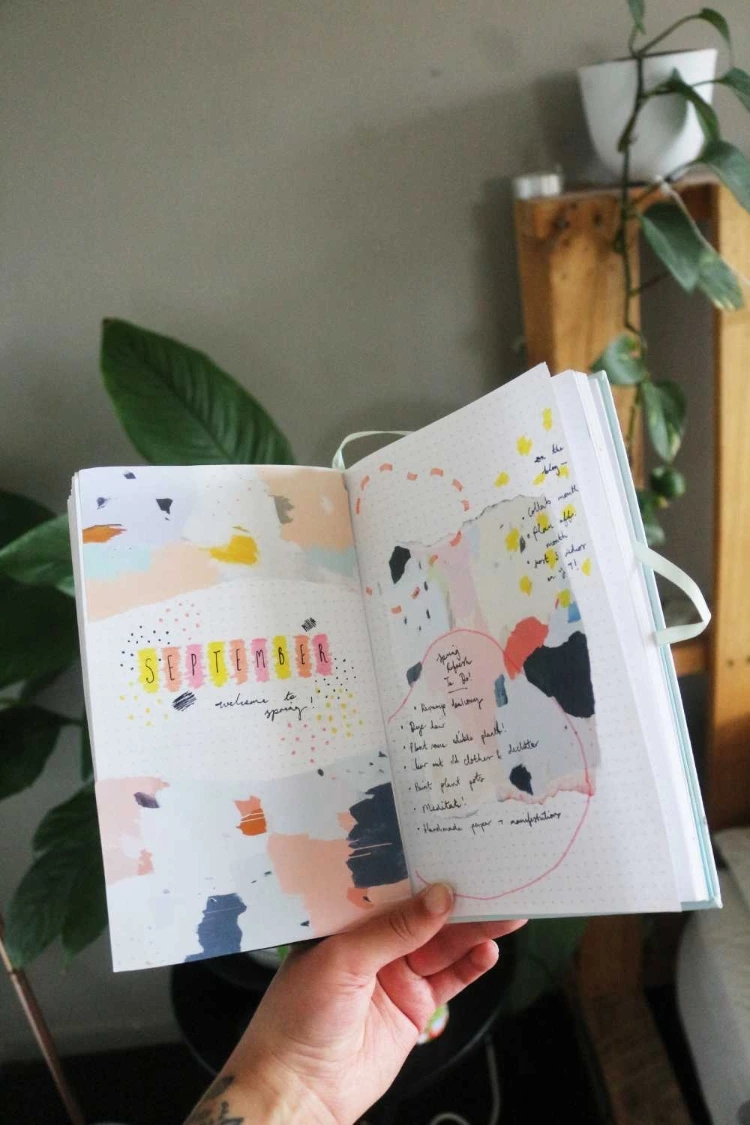 SEPTEMBER
welcome to
spring!
on the
blog -
• Collab month
• Plan
month
• post 3 videos
on
Spring
Refresh
To Do!
• Revamp balcony
• Dye hair
• Plant some edible plants!
• Sort out old clothes & declutter
• Paint plant pots
• Meditate!
• Handmade paper + manifestations